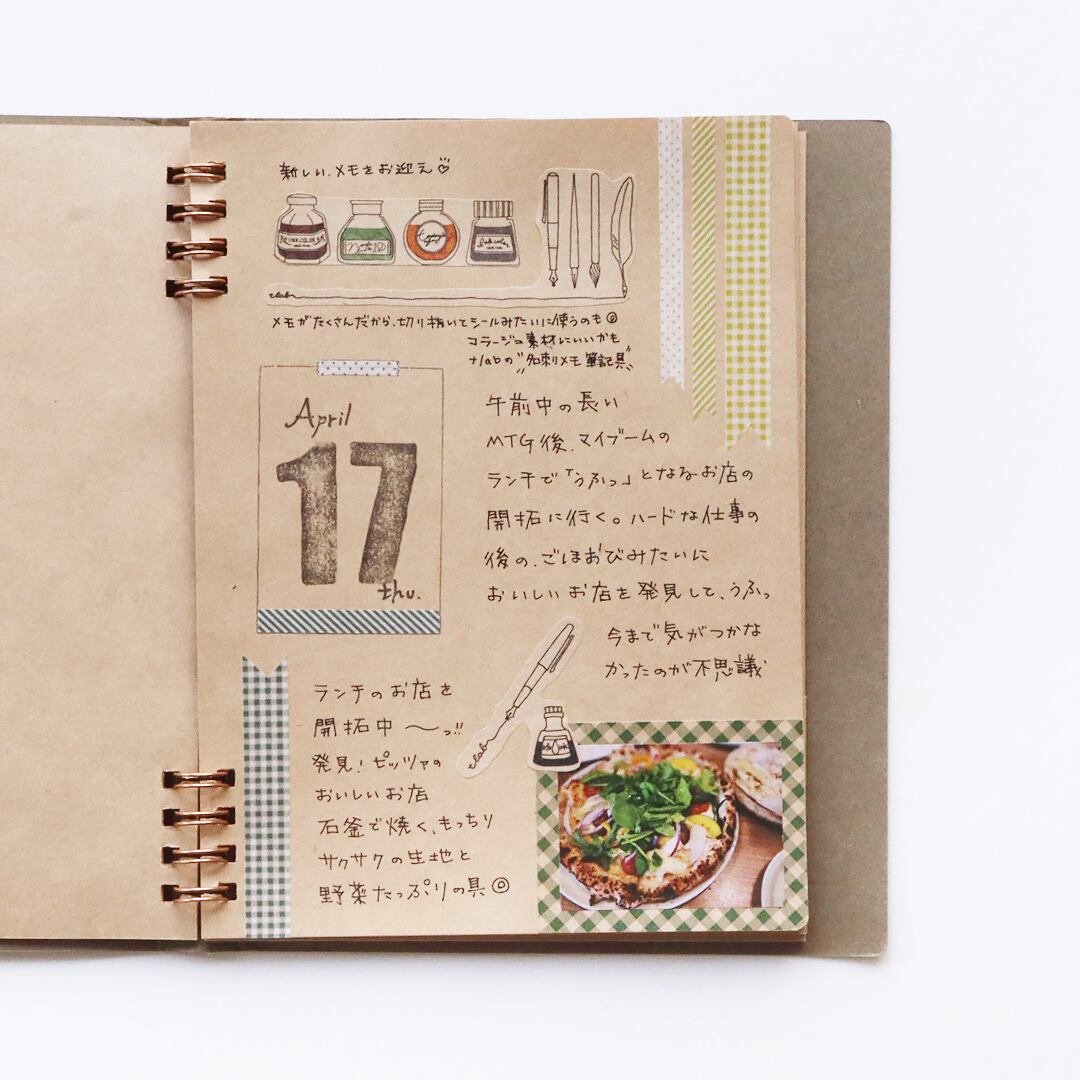 新しい、メモをお迎え♡
INK COLOR
Ink color
clab
メモがたくさんだから、切り抜いてシールみたいに使うのも◎
コラージュ素材にいいかも
+labの"名刺メモ 筆記具"
April
17
thu.
午前中の長い
MTG後、マイブームの
ランチで「うふっ」となるお店の
開拓に行く。ハードな仕事の
後の、ごほおびみたいに
おいしいお店を発見して、うふっ
今まで気がつかな
かったのが不思議
ランチのお店を
開拓中〜っ!!
発見！ピッツァの
おいしいお店
石釜で焼く、もっちり
サクサクの生地と
野菜たっぷりの具◎
clab